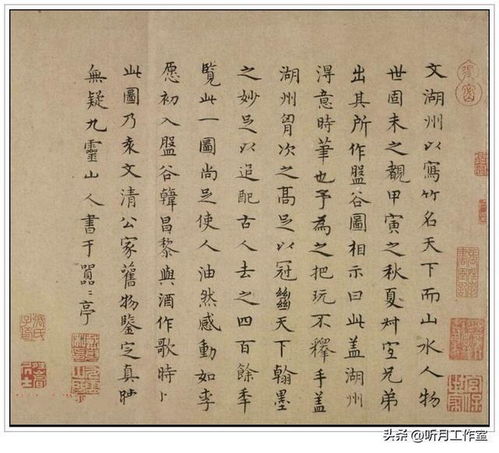 文湖州以寫竹名天下而山水人物
世固未之覩甲寅之秋夏兄弟
出其所作盤谷圖相示曰此盖湖州
淂意時筆也予為之把玩不釋手盖
湖州胷次之髙足以冠天下翰墨
之妙足以追配古人去之四百餘年
覽此一圖尚足使人油然感動如李
愿初入盤谷韓昌黎與酒作歌時
此圖乃袁文清公家舊物鑒定真跡
無疑九靈山人書于囂〻亭
头条 @听月工作室